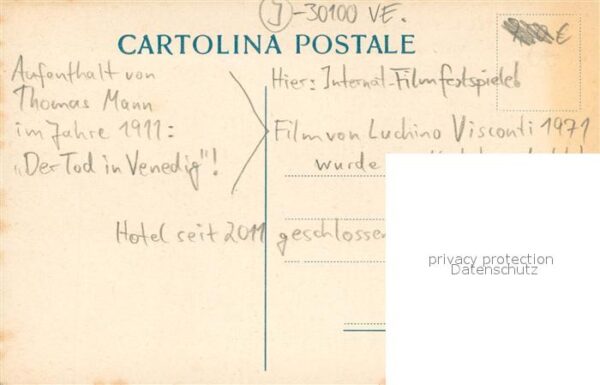 (I)-30100 VE.
€
CARTOLINA POSTALE
Aufenthalt von
Thomas Mann
im Jahre 1911:
„Der Tod in Venedig"!
Hier: Internat-Filmfestspiele!
Film von Luchino Visconti 1971
wurde
Hotel seit 2011 geschlossen
privacy protection
Datenschutz